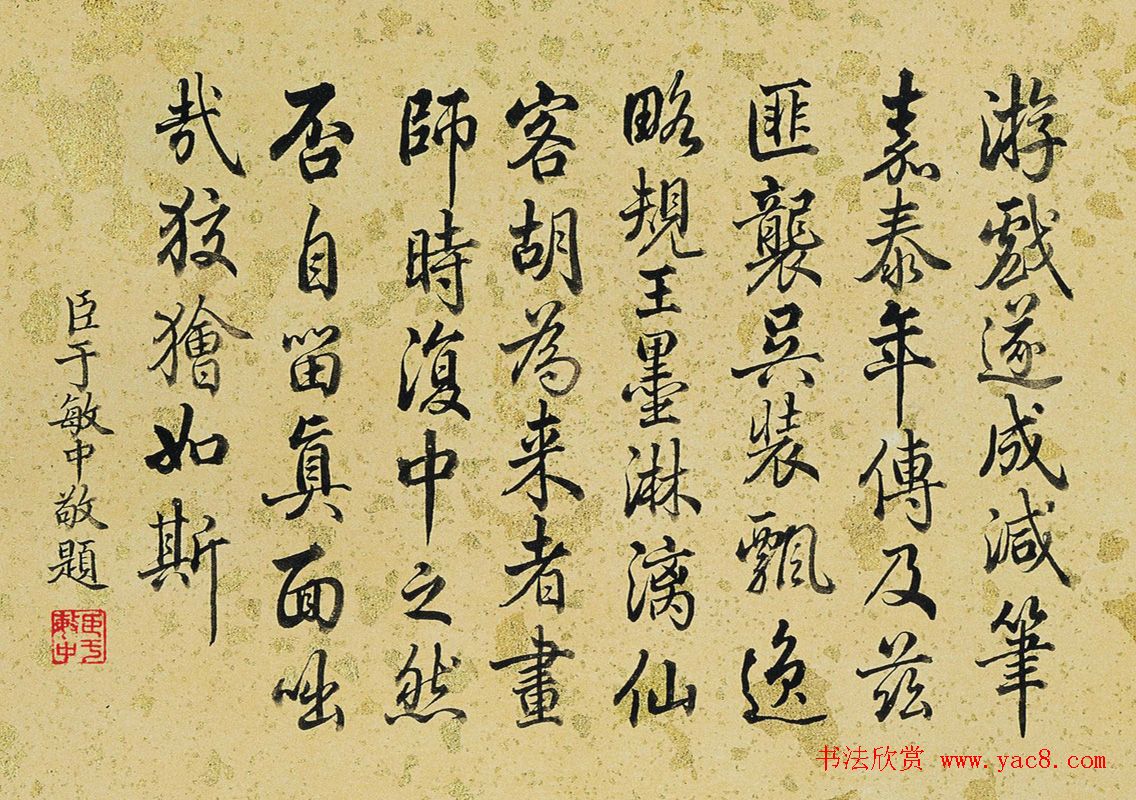 游戲遂成減筆
嘉泰年傳及茲
匪襲吳裝飄逸
略規王墨淋漓仙
客胡為来者畫
師時復中之然
否自留真面咄
哉狡獪如斯
臣于敏中敬題
臣于敏中
书法欣赏 www.yac8.com